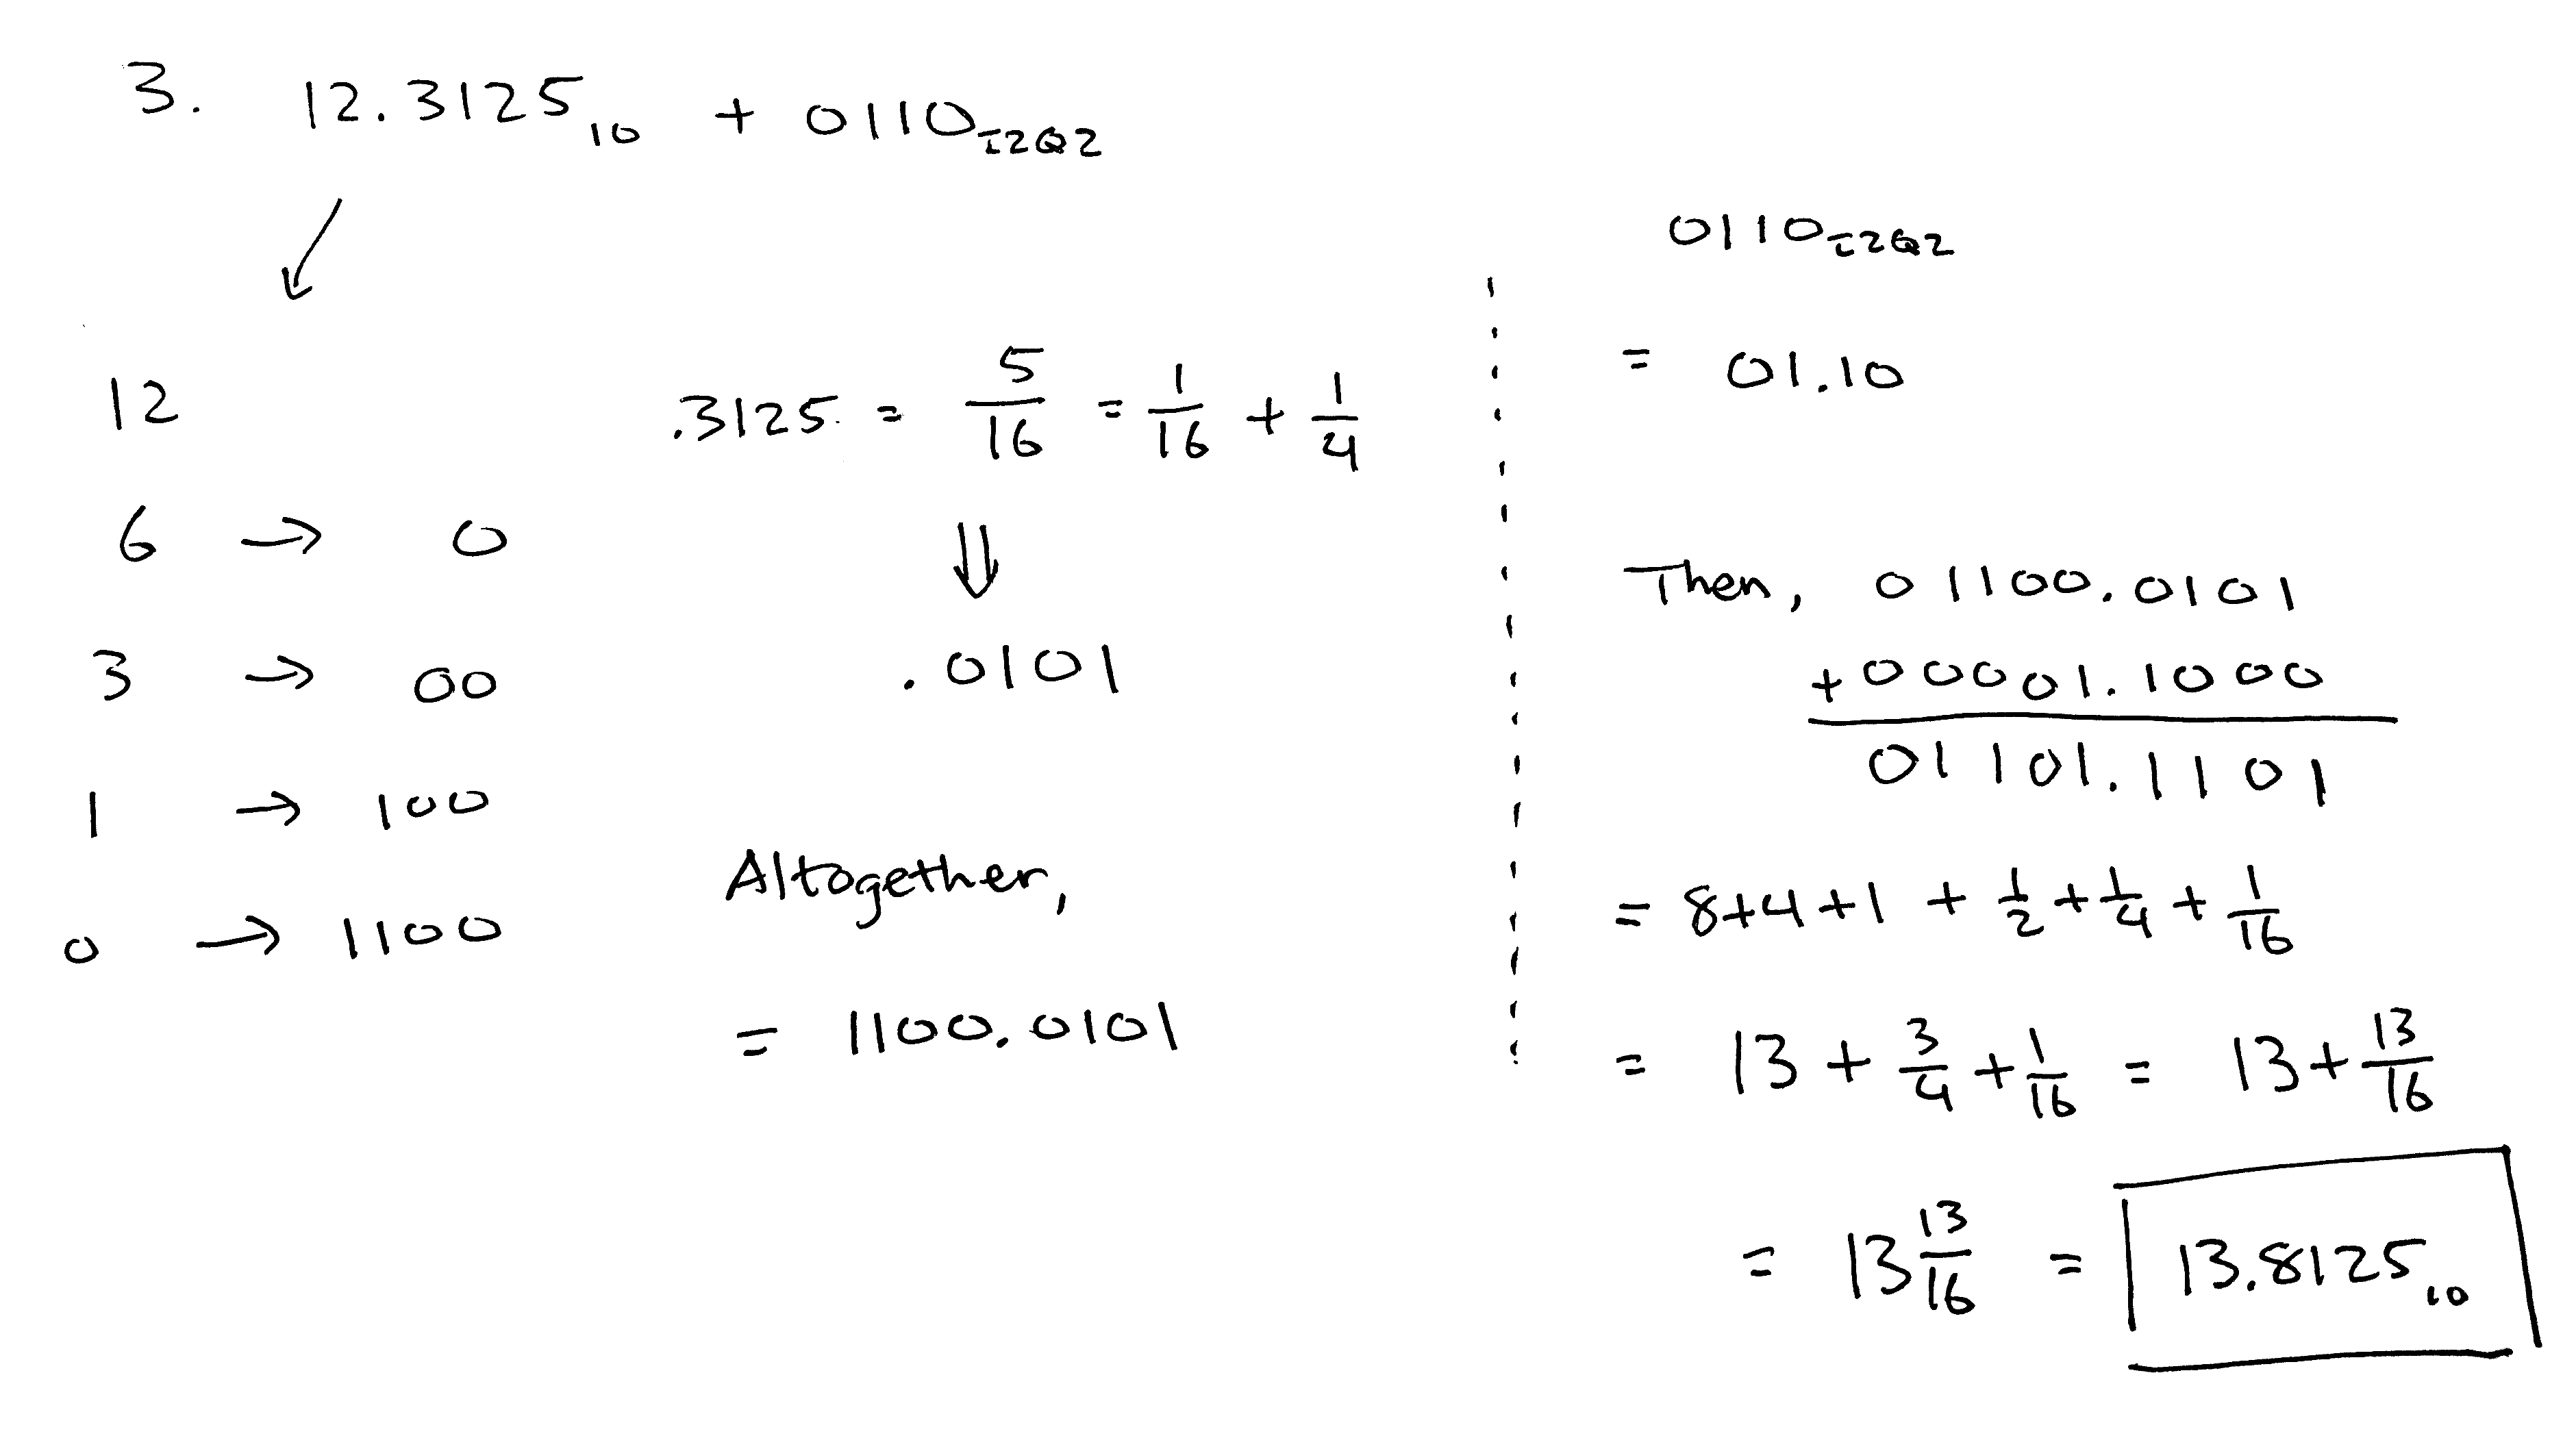 3. 12.3125₁₀ + 0110_I2Q2
12
6 → 0
3 → 00
1 → 100
0 → 1100
.3125 = 5/16 = 1/16 + 1/4
⇓
.0101
Altogether,
= 1100.0101
0110_I2Q2
= 01.10
Then, 01100.0101
+00001.1000
01101.1101
= 8+4+1 + 1/2 + 1/4 + 1/16
= 13 + 3/4 + 1/16 = 13 + 13/16
= 13 13/16 = 13.8125₁₀